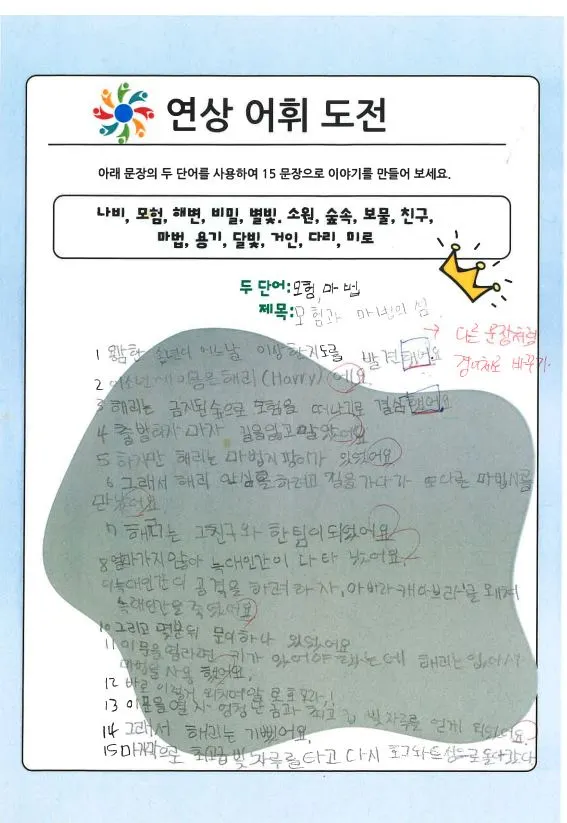 연상 어휘 도전
아래 문장의 두 단어를 사용하여 15 문장으로 이야기를 만들어 보세요.
나비, 모험, 해변, 비밀, 별빛. 소원, 숲속, 보물, 친구,
마법, 용기, 달빛, 거인, 다리, 미로
두 단어: 모험, 마법
제목: 모험과 마법의 섬
→ 다른 문장처럼
1 용감한 소년이 어느날 이상한 지도를 발견했어요
경어체로 바꾸기.
2 이소년에 이름은 해리(Harry)에요.
3 해리는 금지된 숲으로 모험을 떠나기로 결심했어요
4 출발하자 마자 길을 잃고 말았어요
5 하지만 해리는 마법지팡이가 있었어요
6 그래서 해리 안심을 하려고 길을 가다가 또 다른 마법사를
만났어요
7 해리는 그친구와 한팀이 되었어요
8 얼마가지않아 늑대인간이 나타 났어요.
9 늑대인간이 공격을 하려 하자,
늑대인간을 죽였어요
10 그리고 몇분뒤 문이하나 있었어요
11 이문을 열라면 키가 있어야 하는데 해리는
마법을 사용 했어요.
12 바로 이렇게 외치며
13 이문을 열자 엄청난 금과 최고급 빗자루를 얻게 되었어요.
14 그래서 해리는 기뻤어요.
15 마지막으로 최고급 빗자루를 타고 다시 돌아갔다